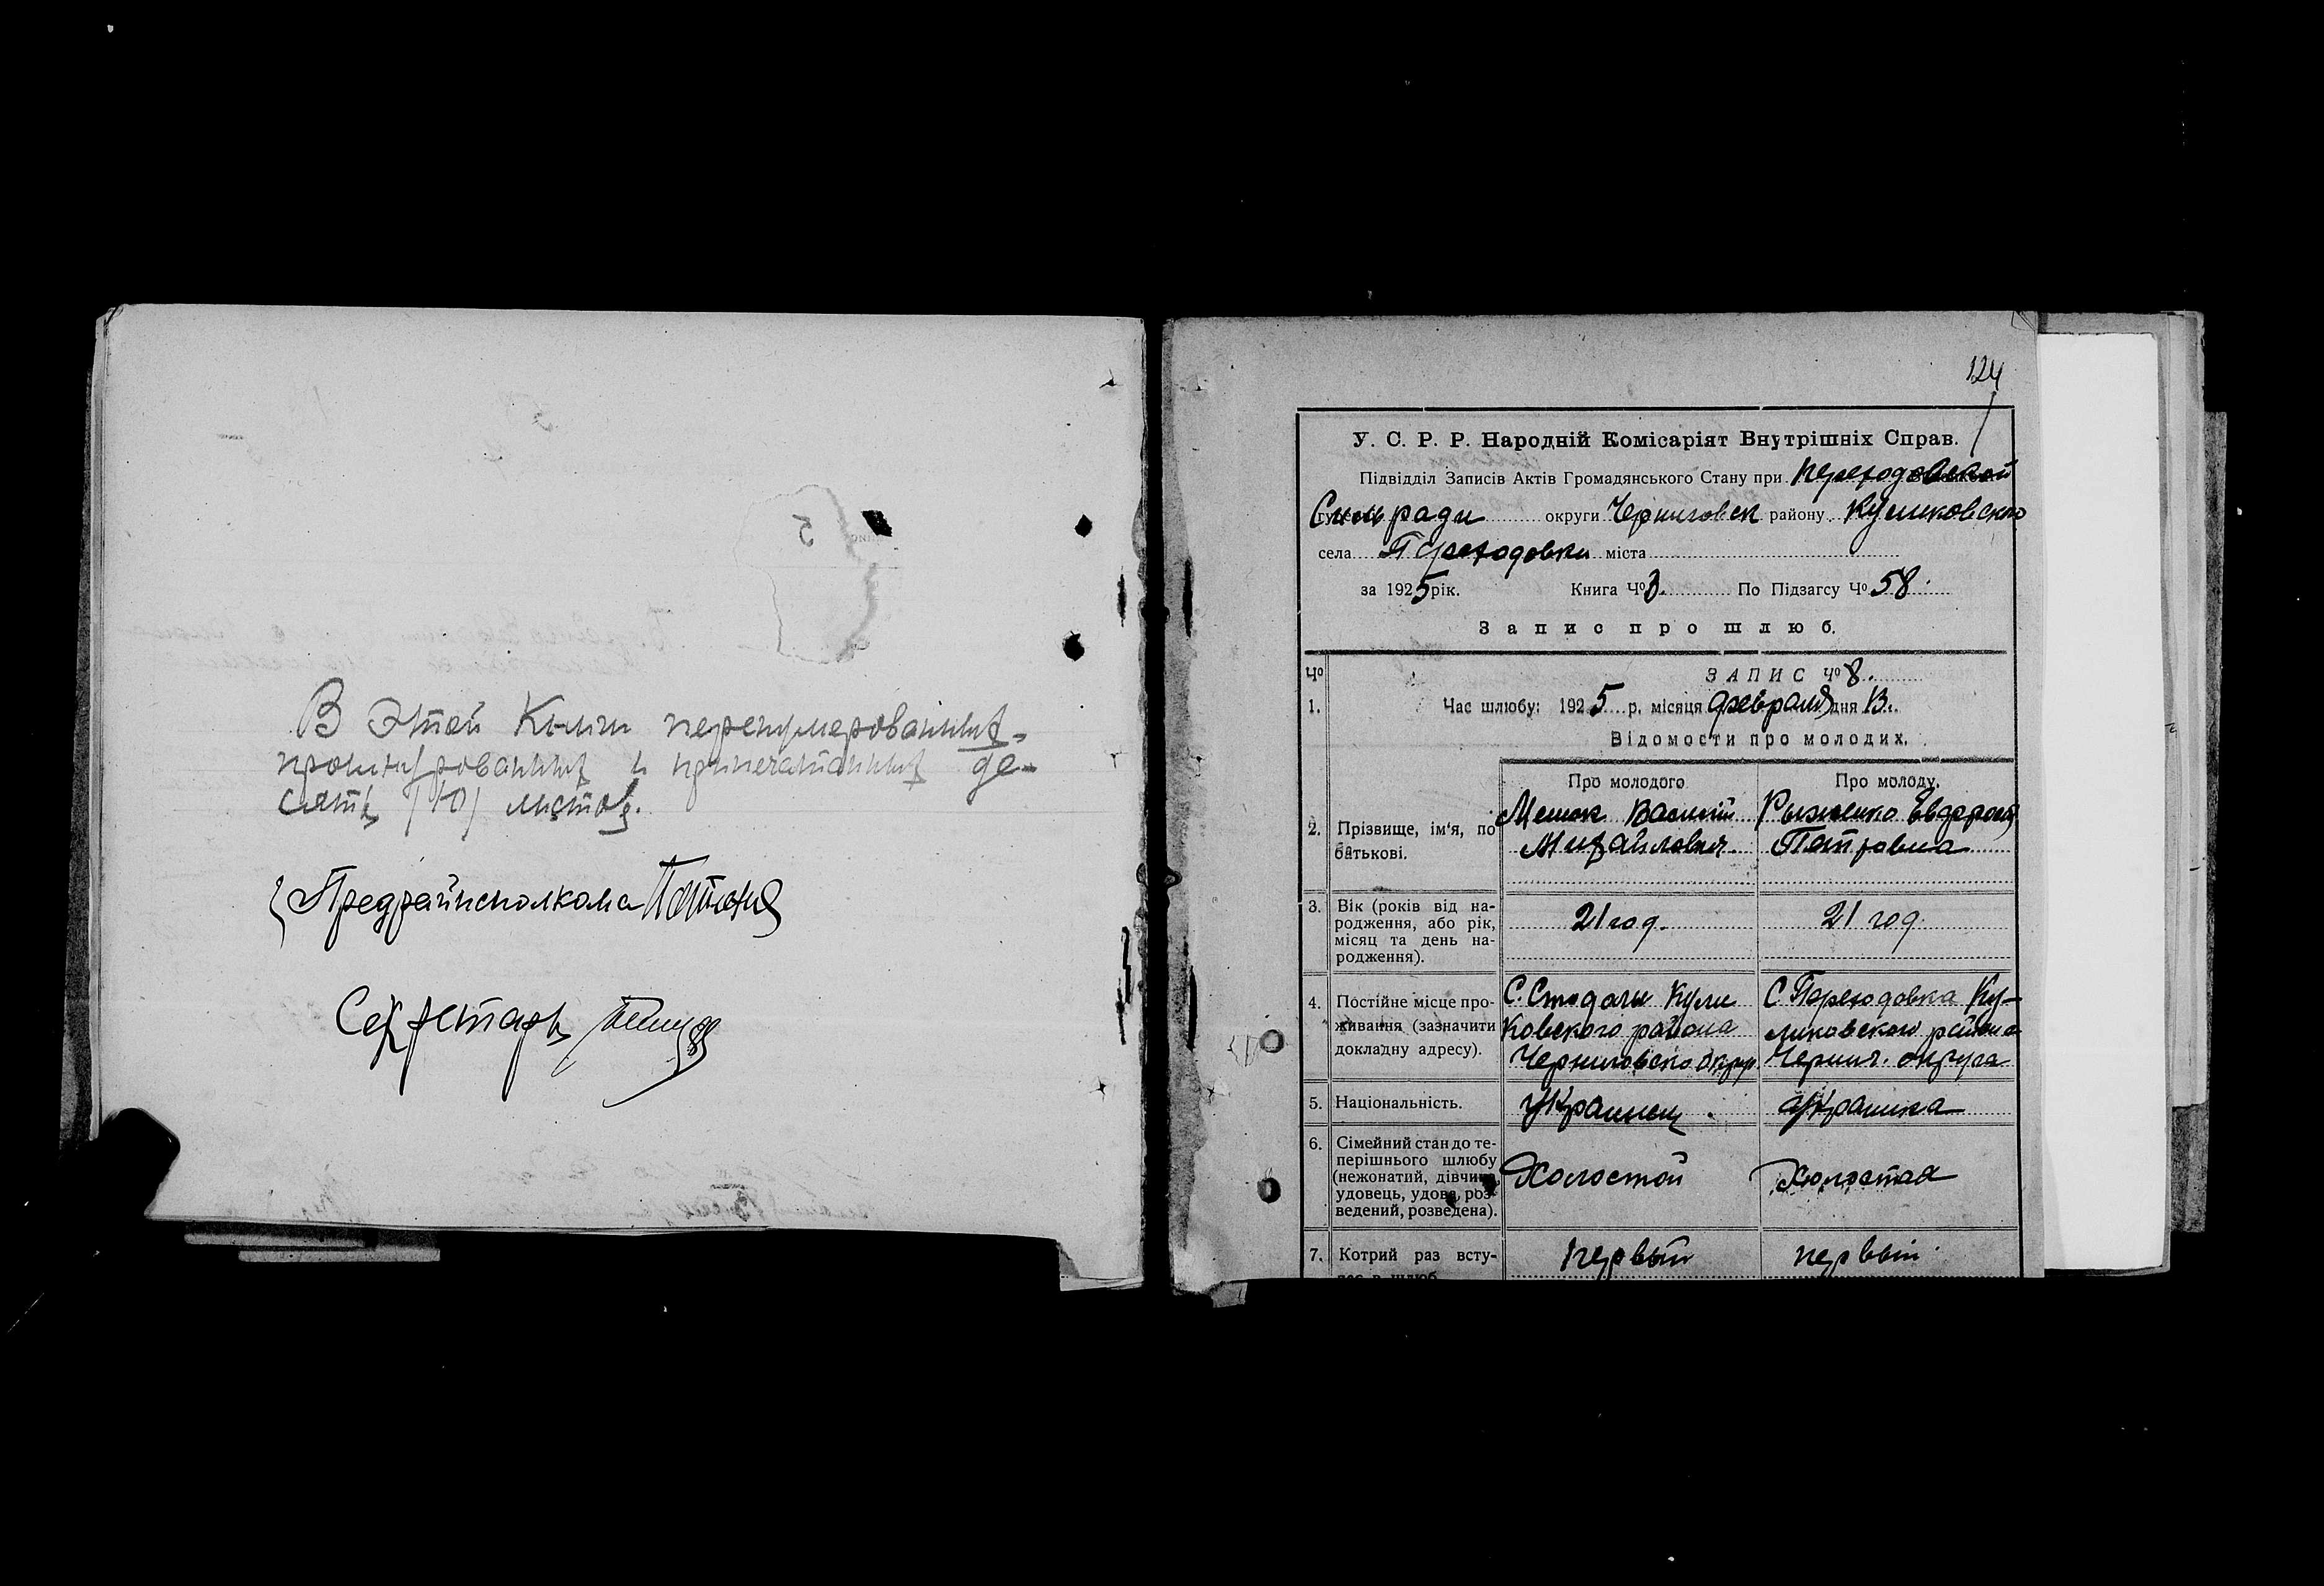 В этой Книги перенумерованных,
прошнурованных и припечатанных де-
сять /10/ листов.
Предрайисполкома
Секретарь
124
У. С. Р. Р. Народній Комісаріят Внутрішніх Справ.
Підвідділ Записів Актів Громадянського Стану при Переходовской
Сельради округи Черниговск району Куликовского
села Переходовки міста
за 1925 рік. Книга Чº 3. По Підзагсу Чº 58.
Запис про шлюб.
Чº ЗАПИС Чº 8.
1. Час шлюбу: 1925 р. місяця февраля дня 13.
Відомости про молодих.
Про молодого Про молоду.
2. Прізвище, ім'я, по батькові.
Василий
Михайлович.
Рыженко Евдокия
Петровна
3. Вік (років від на-
родження, або рік,
місяц та день на-
родження).
21 год.
21 год.
4. Постійне місце про-
живання (зазначити
докладну адресу).
С. Стодолы Кули
ковского района
Черниговского окр.
С. Переходовка Ку-
ликовского района
Черниг. округа
5. Національність.
Украинец.
Украинка
6. Сімейний стан до те-
перішнього шлюбу
(нежонатий, дівчина,
удовець, удова, роз-
ведений, розведена).
Холостой
Холостая
7. Котрий раз всту-
первый
первый